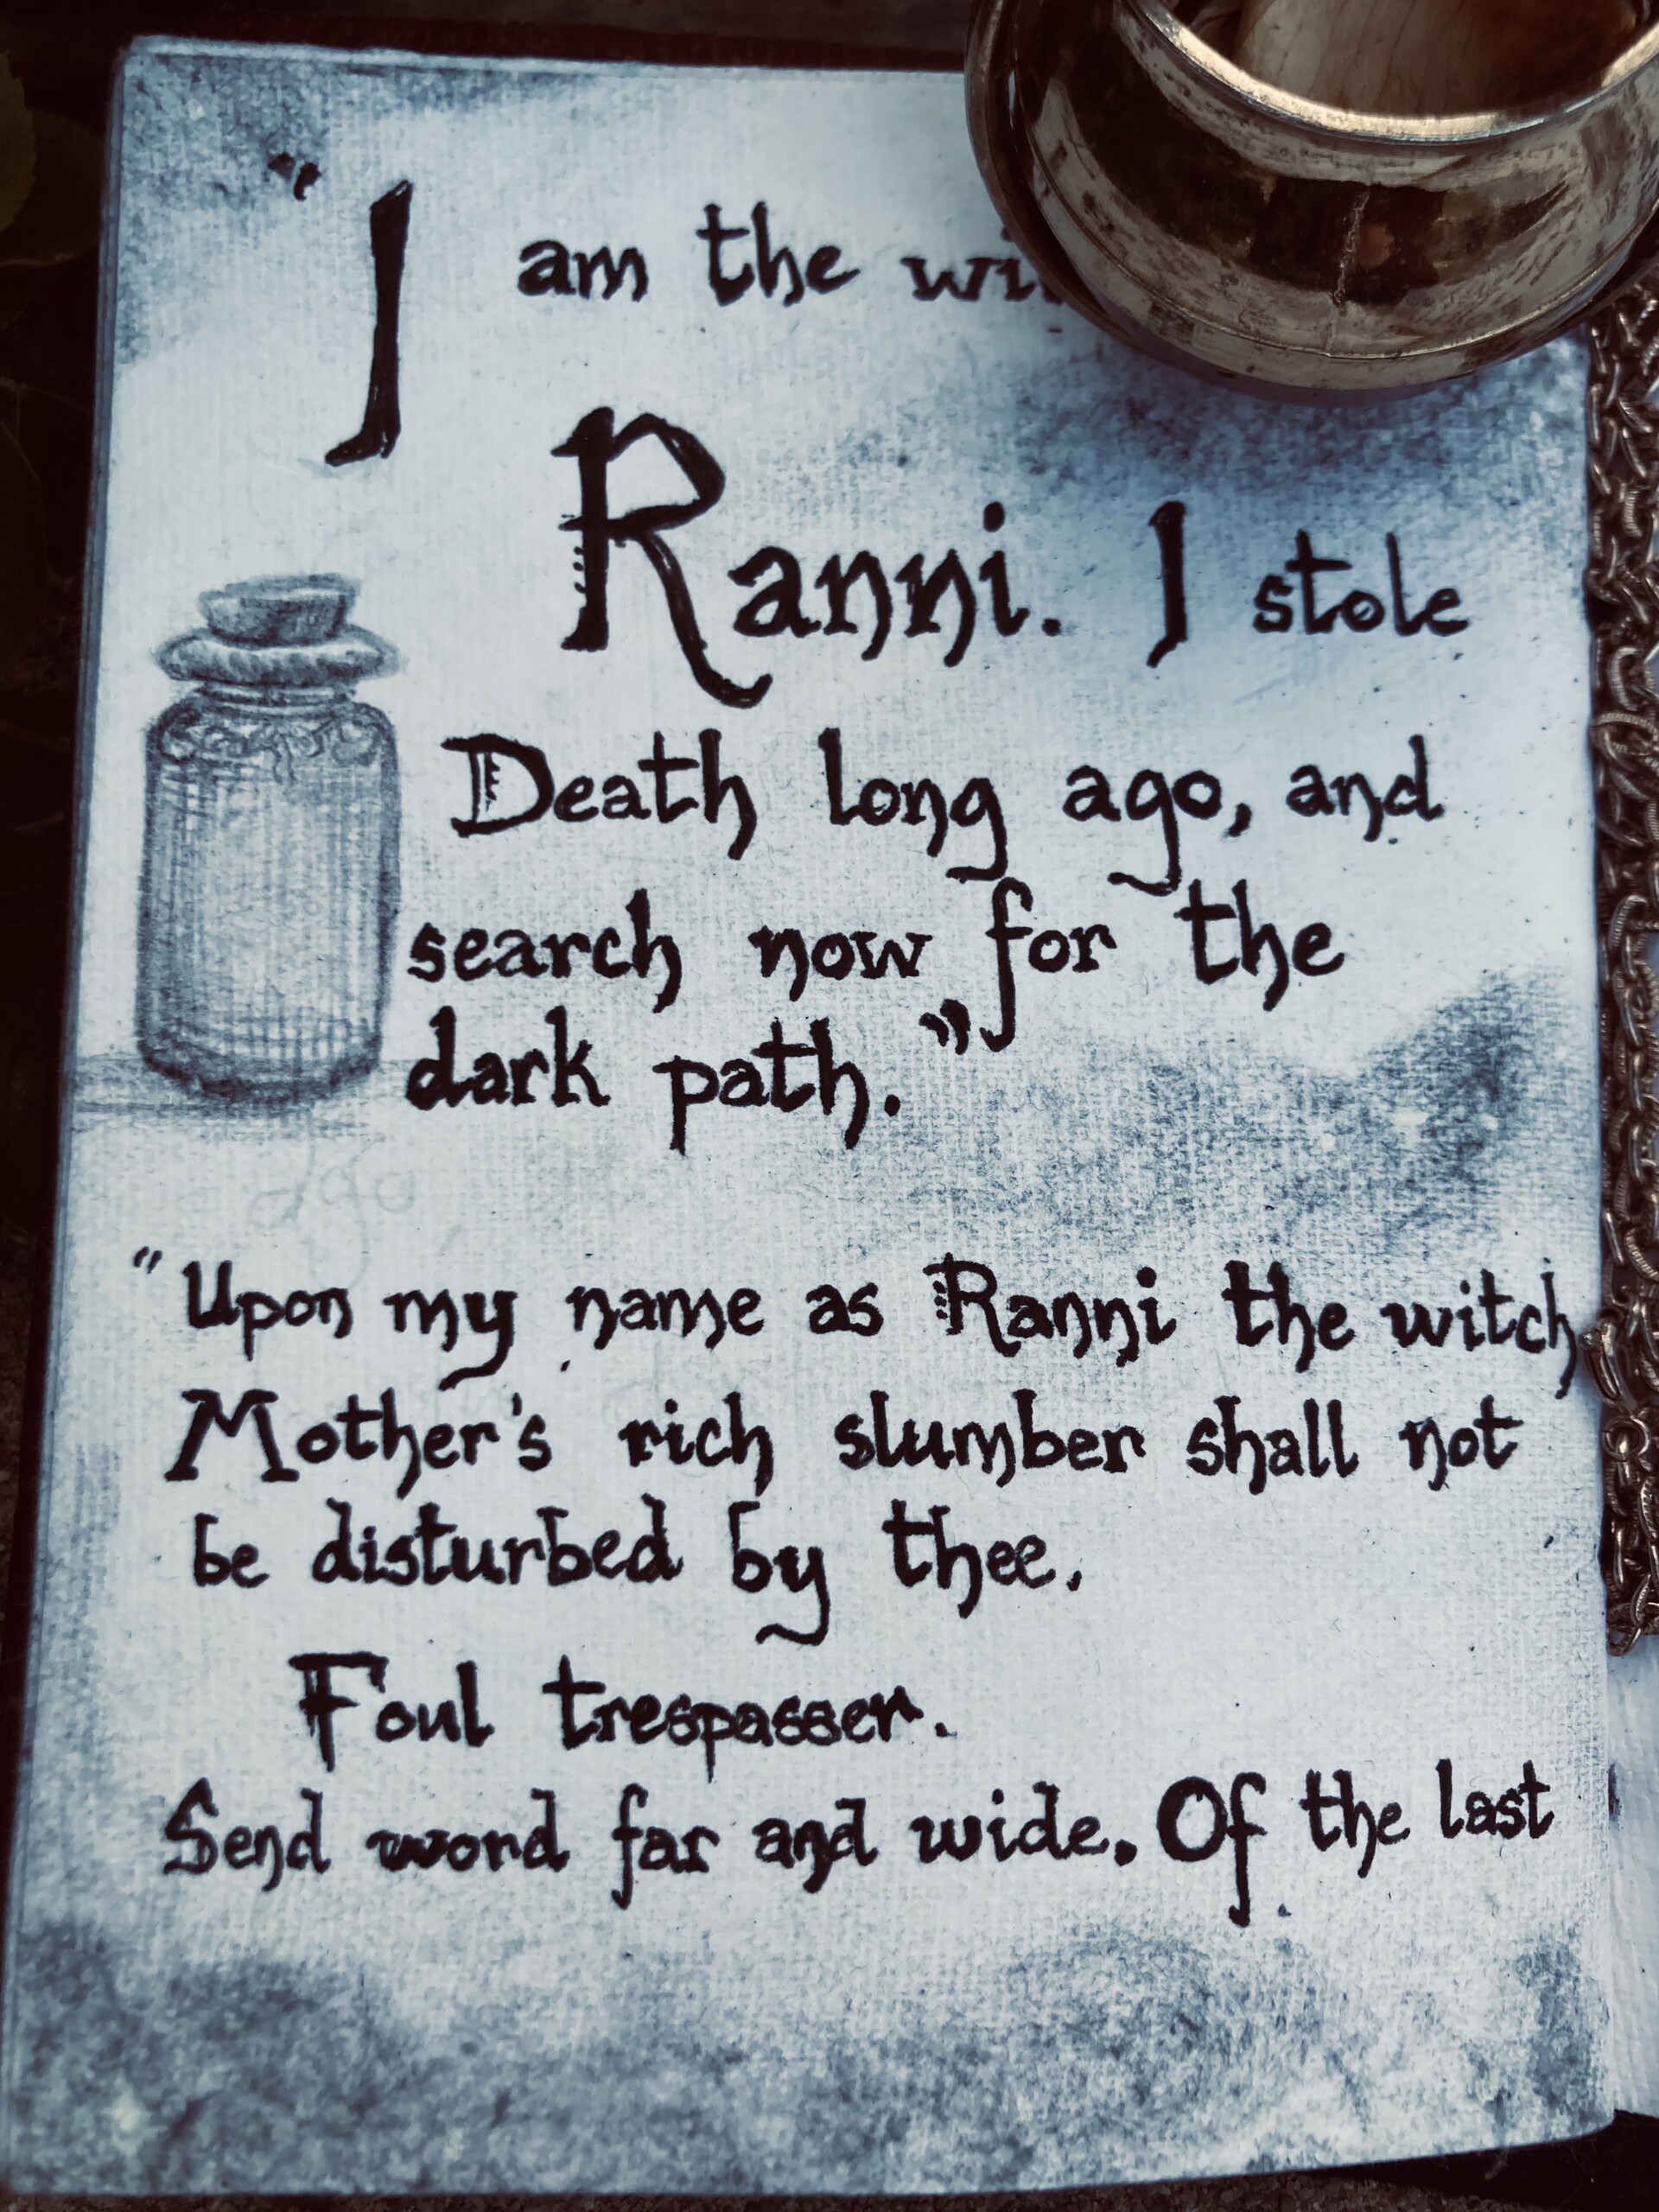 "I am the
Ranni. I stole
Death long ago, and
search now for the
dark path."
ago
"Upon my name as Ranni the witch
Mother's rich slumber shall not
be disturbed by thee.
Foul trespasser.
Send word far and wide. Of the last